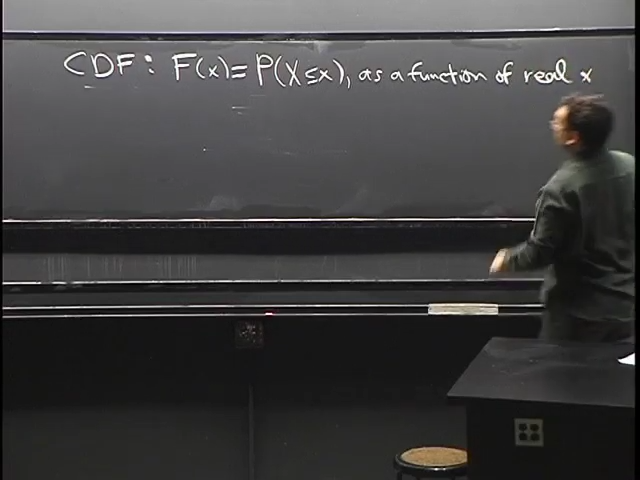 CDF: F(x) = P(X ≤ x), as a function of real x